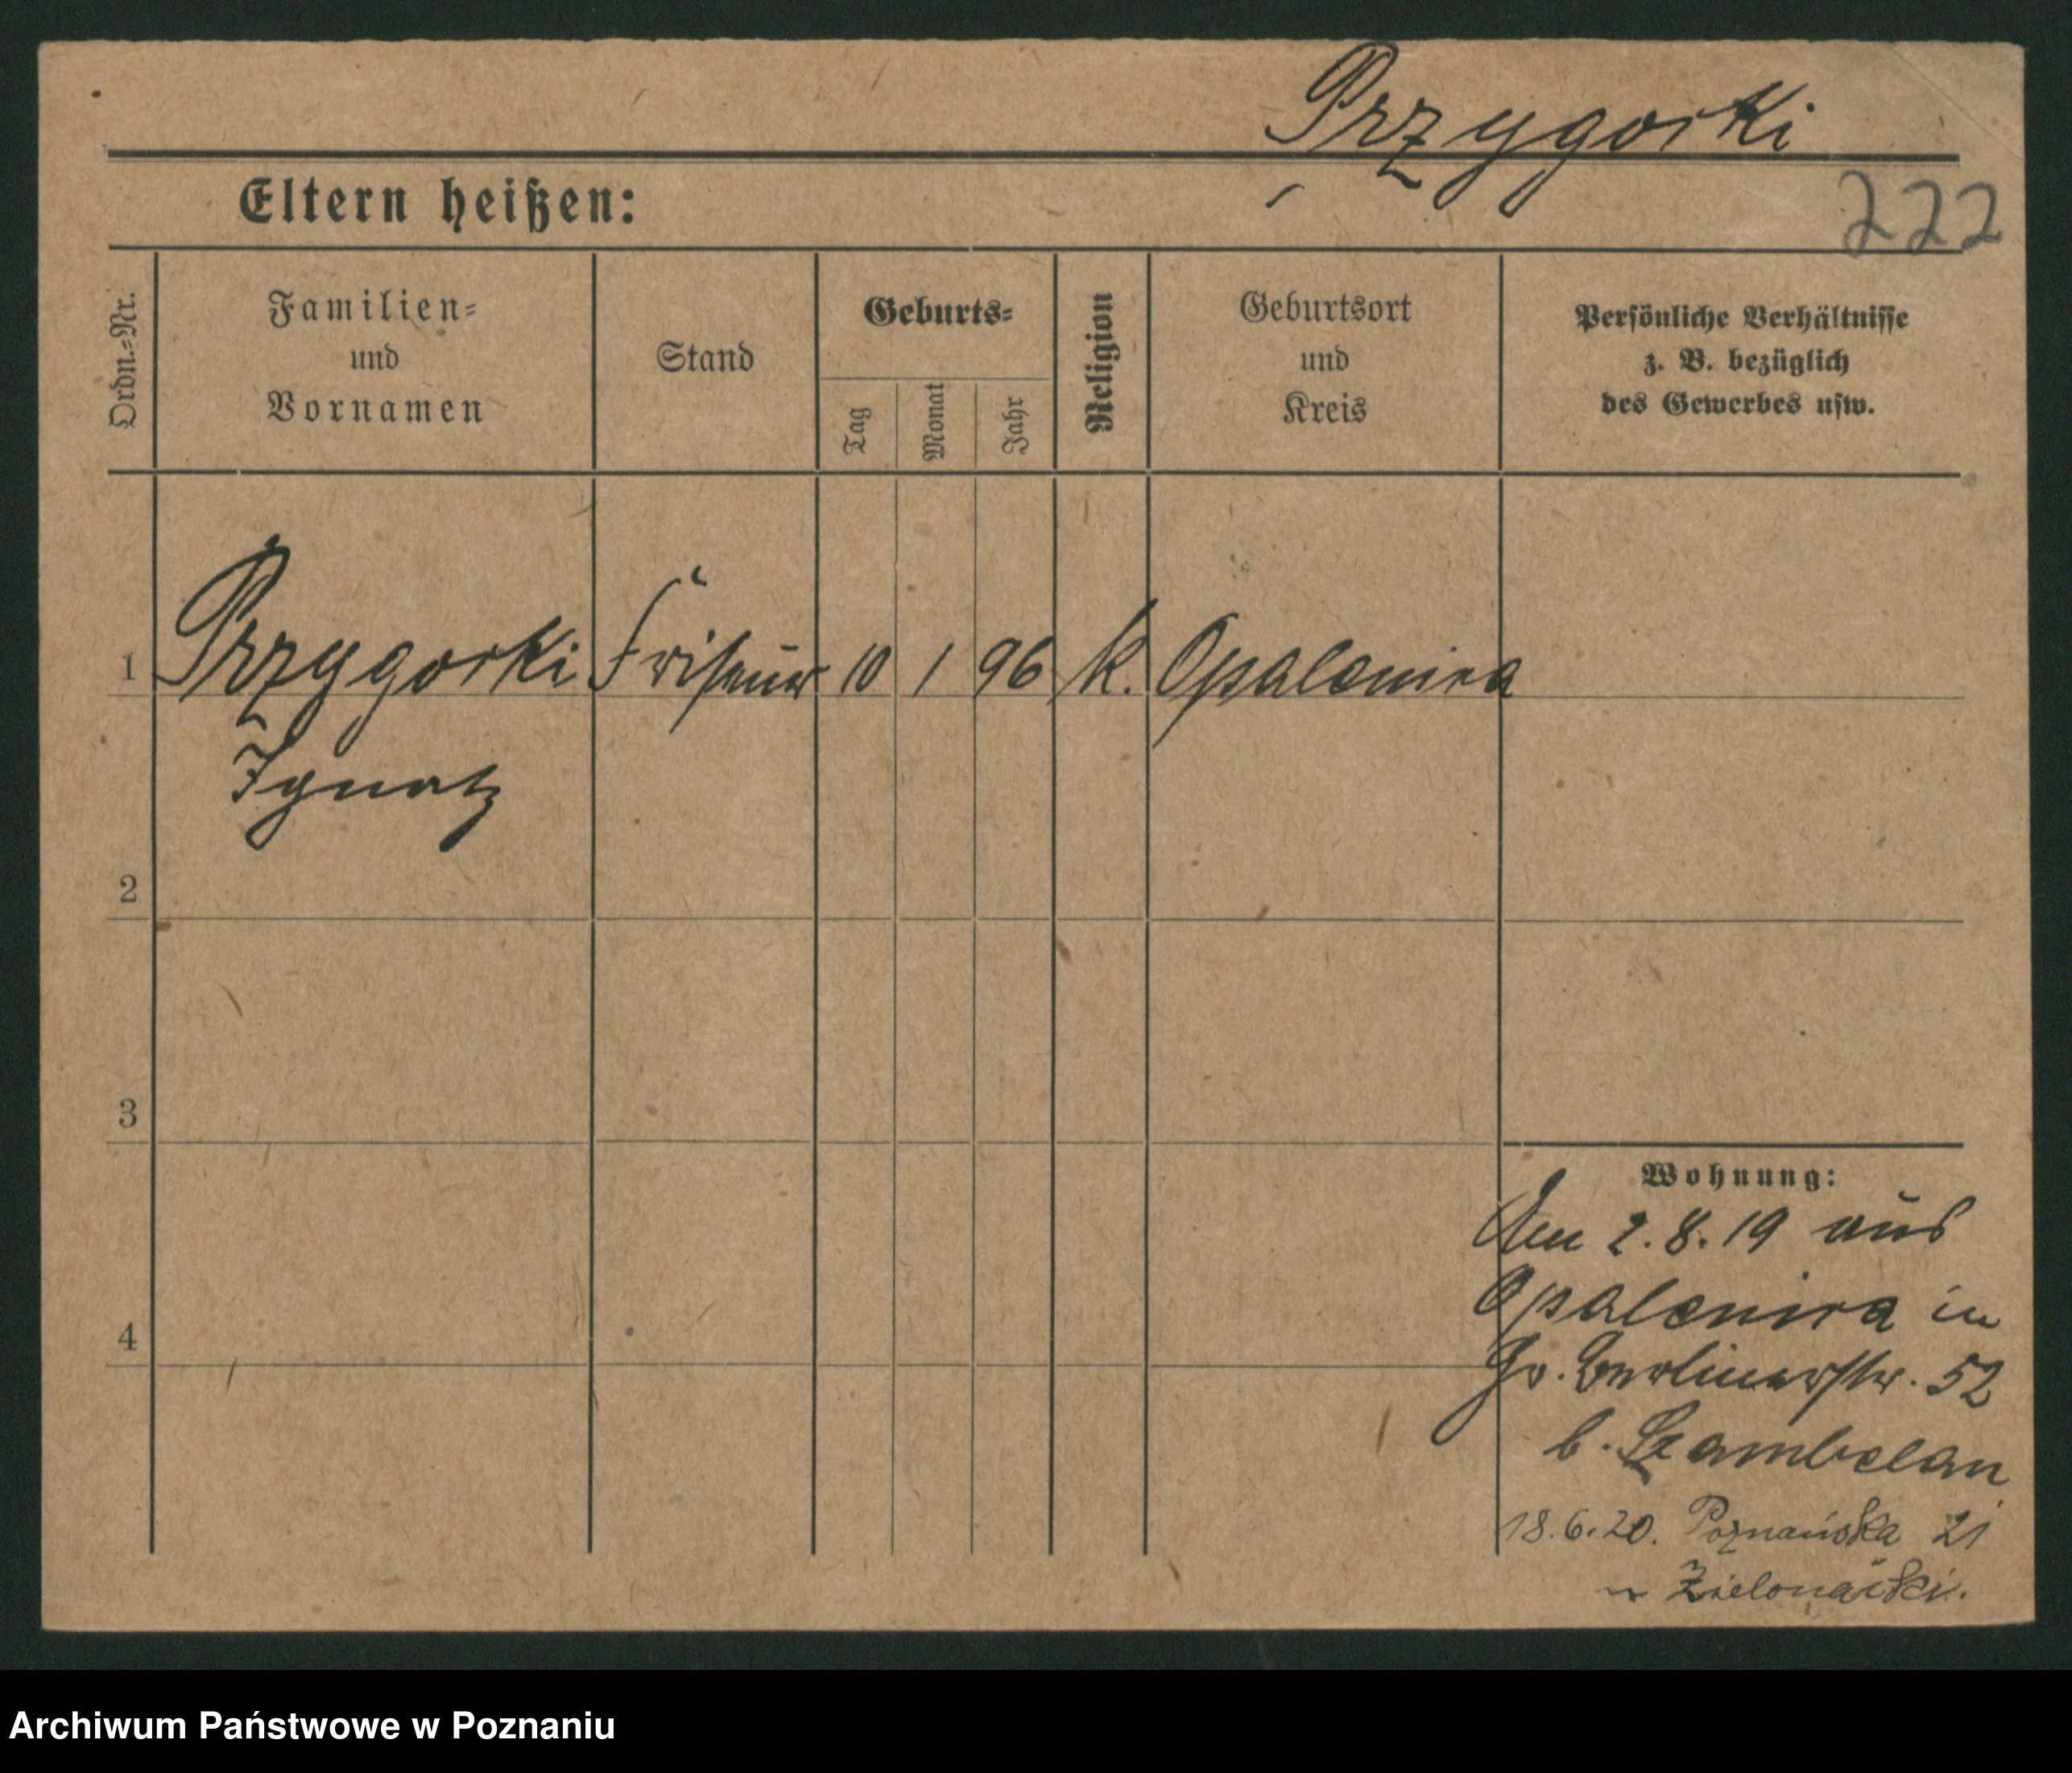 Przygorki
222
Eltern heißen:
Ordn.=Nr.
Familien=
und
Vornamen
Stand
Geburts=
Tag
Monat
Jahr
Religion
Geburtsort
und
Kreis
Persönliche Verhältnisse
z. B. bezüglich
des Gewerbes usw.
1 Przygorki Friseur 10 1 96 K. Opalenica
Ignatz
2
3
4
Wohnung:
Den 2.8.19 aus
Opalenica in
Gr. Berlinerstr. 52
b. Szambelan
18.6.20. Poznańska 21
Archiwum Państwowe w Poznaniu